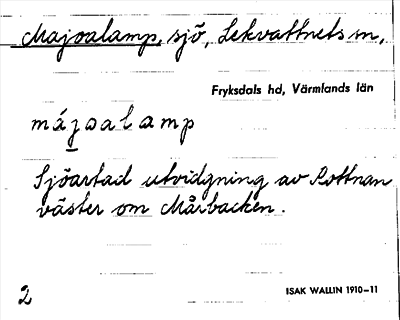 Majoalamp, sjö, Lekvattnets sn,
Fryksdals hd, Värmlands län
májoalamp
Sjöartad utvidgning av Rottnan
väster om Mårbacken.
2
ISAK WALLIN 1910-11